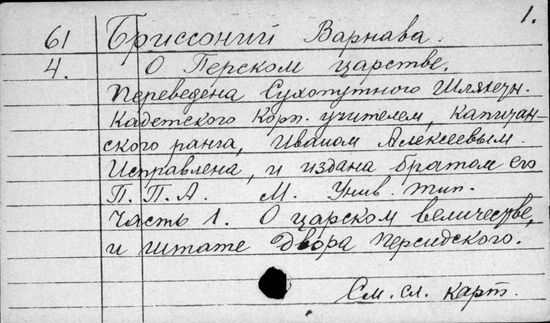 1.
61 Бриссоний Варнава.
4. О Перском царстве.
Переведена Сухопутного Шляхетн.
Кадетского Корп. учителем, капитан-
ского ранга, Иваном Алексеевым.
Исправлена, и издана братом его
П. П. А. М. Унив. тип.
Часть 1. О царском величестве,
и штате Двора Персидского.
См. сл. карт.